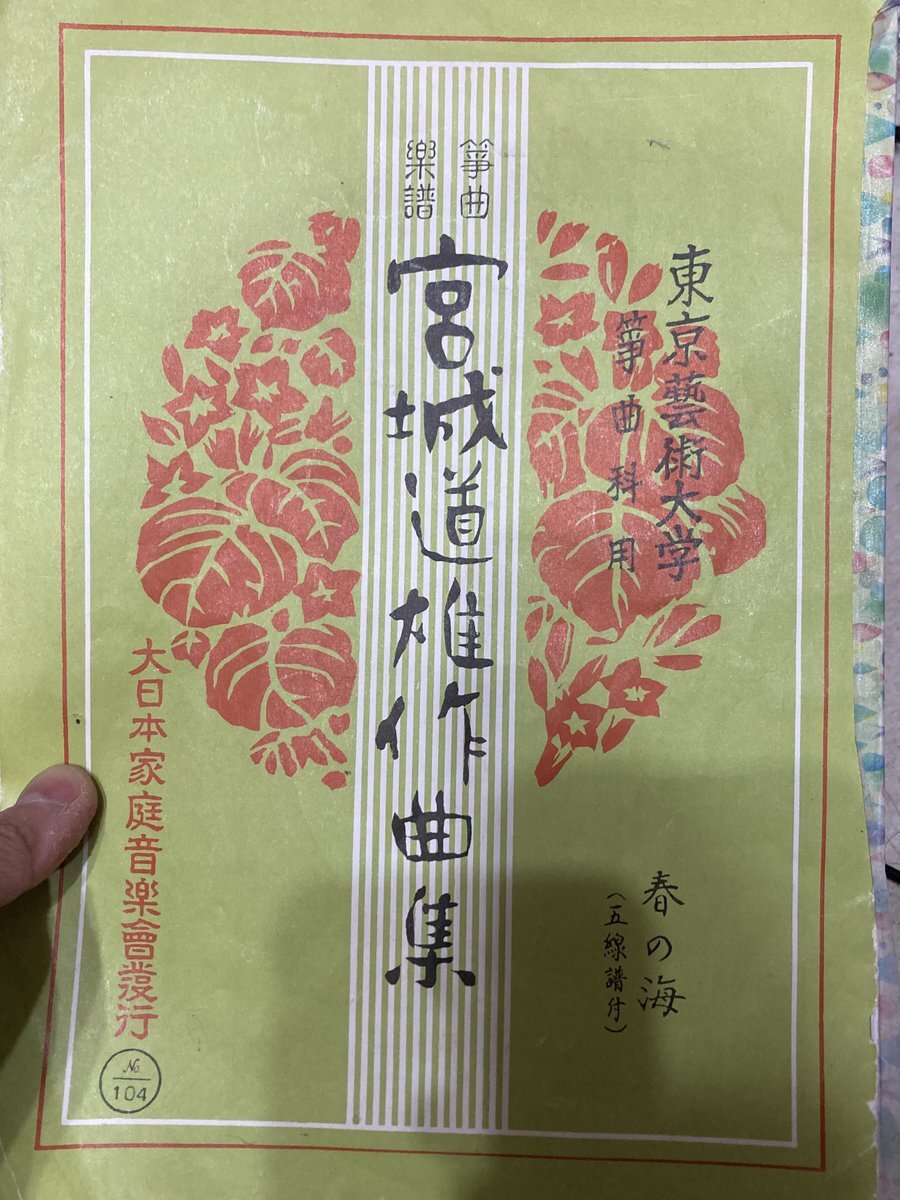 東京藝術大学
箏曲科用
箏曲
樂譜
宮城道雄作曲集
春の海
(五線譜付)
大日本家庭音楽會發行
No.
104